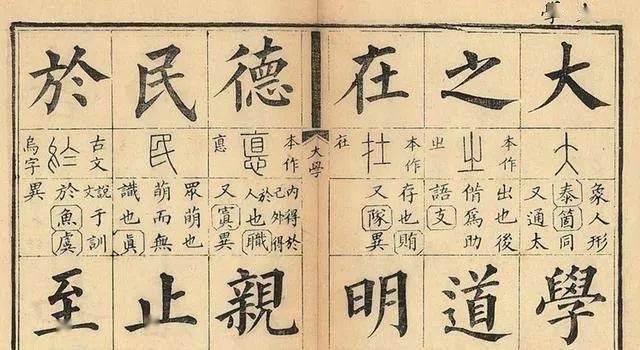 大
象人形
泰箇同
又通太
學
之
本作
㞢
出也後
偕為助
語支
道
在
本作
在
存也賄
又隊異
明
大學
德
本作
悳
內得於
己外得
於人也職
又寘異
親
民
眾萌也
萌而無
識也眞
止
於
古文
烏字
說于訓
文於魚虞
異
至